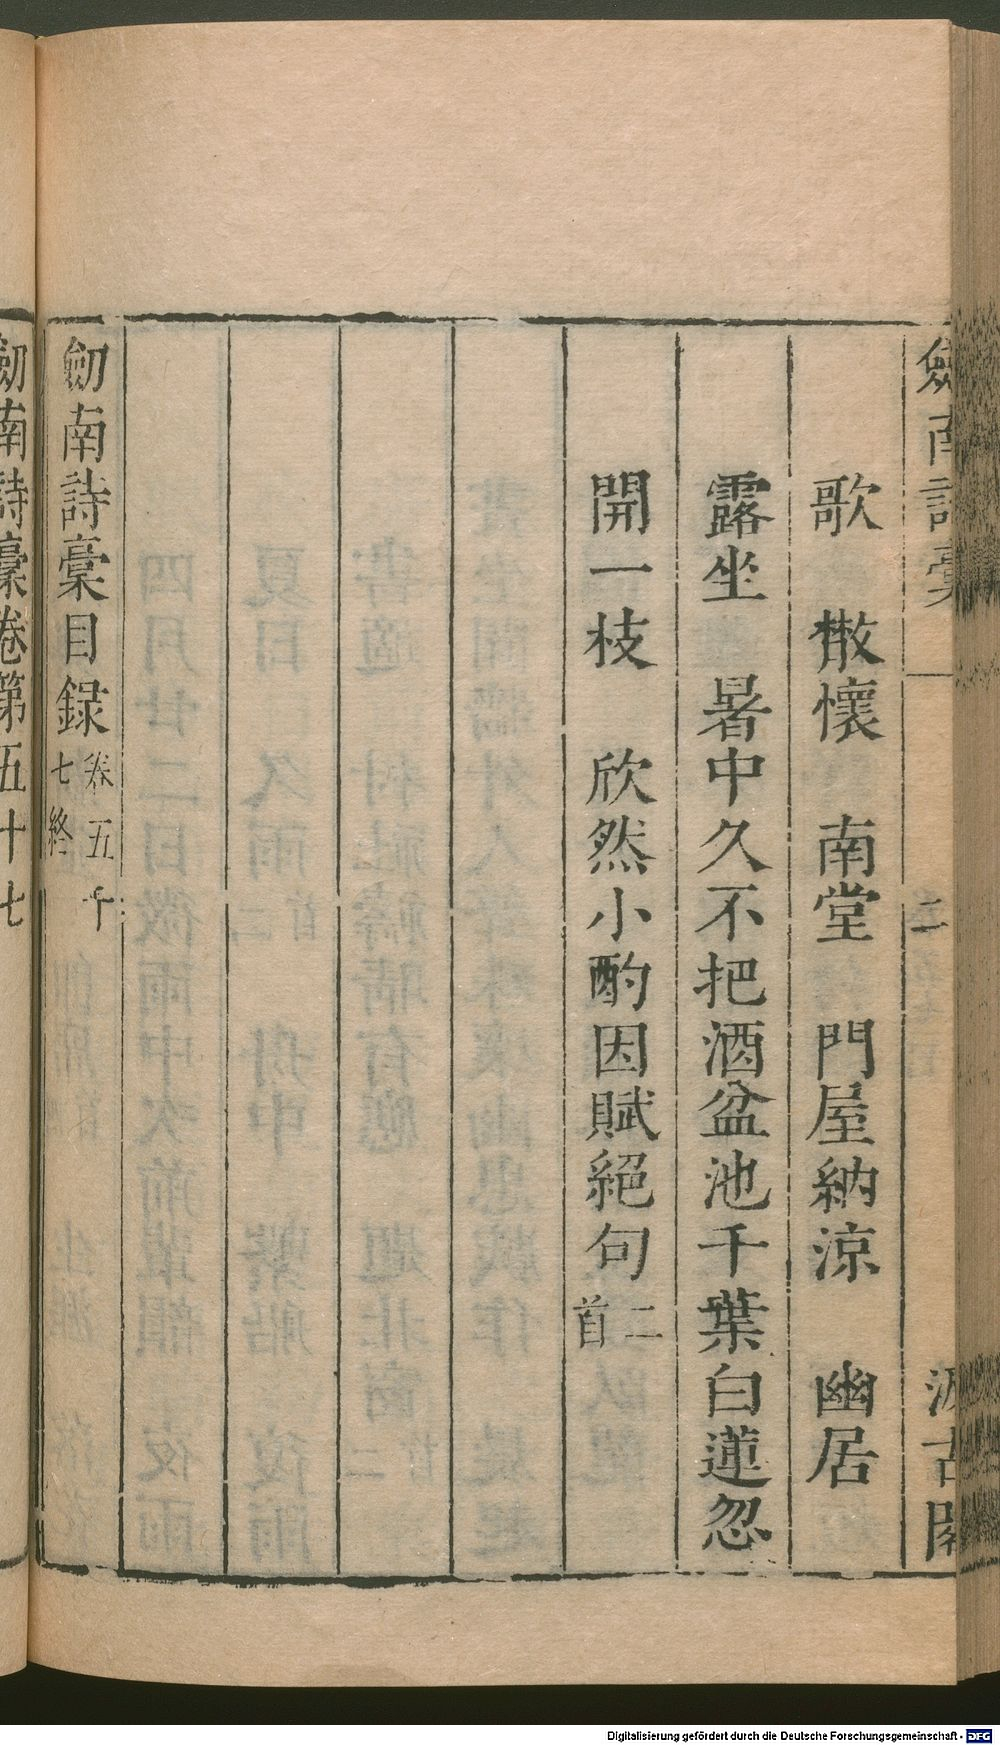 劒南詩稾 二 汲古閣
歌 散懷 南堂 門屋納涼 幽居
露坐 暑中久不把酒盆池千葉白蓮忽
開一枝 欣然小酌因賦絕句二首
劒南詩稾目録卷五十七終
劒南詩稾卷第五十七
Digitalisierung gefördert durch die Deutsche Forschungsgemeinschaft - DFG